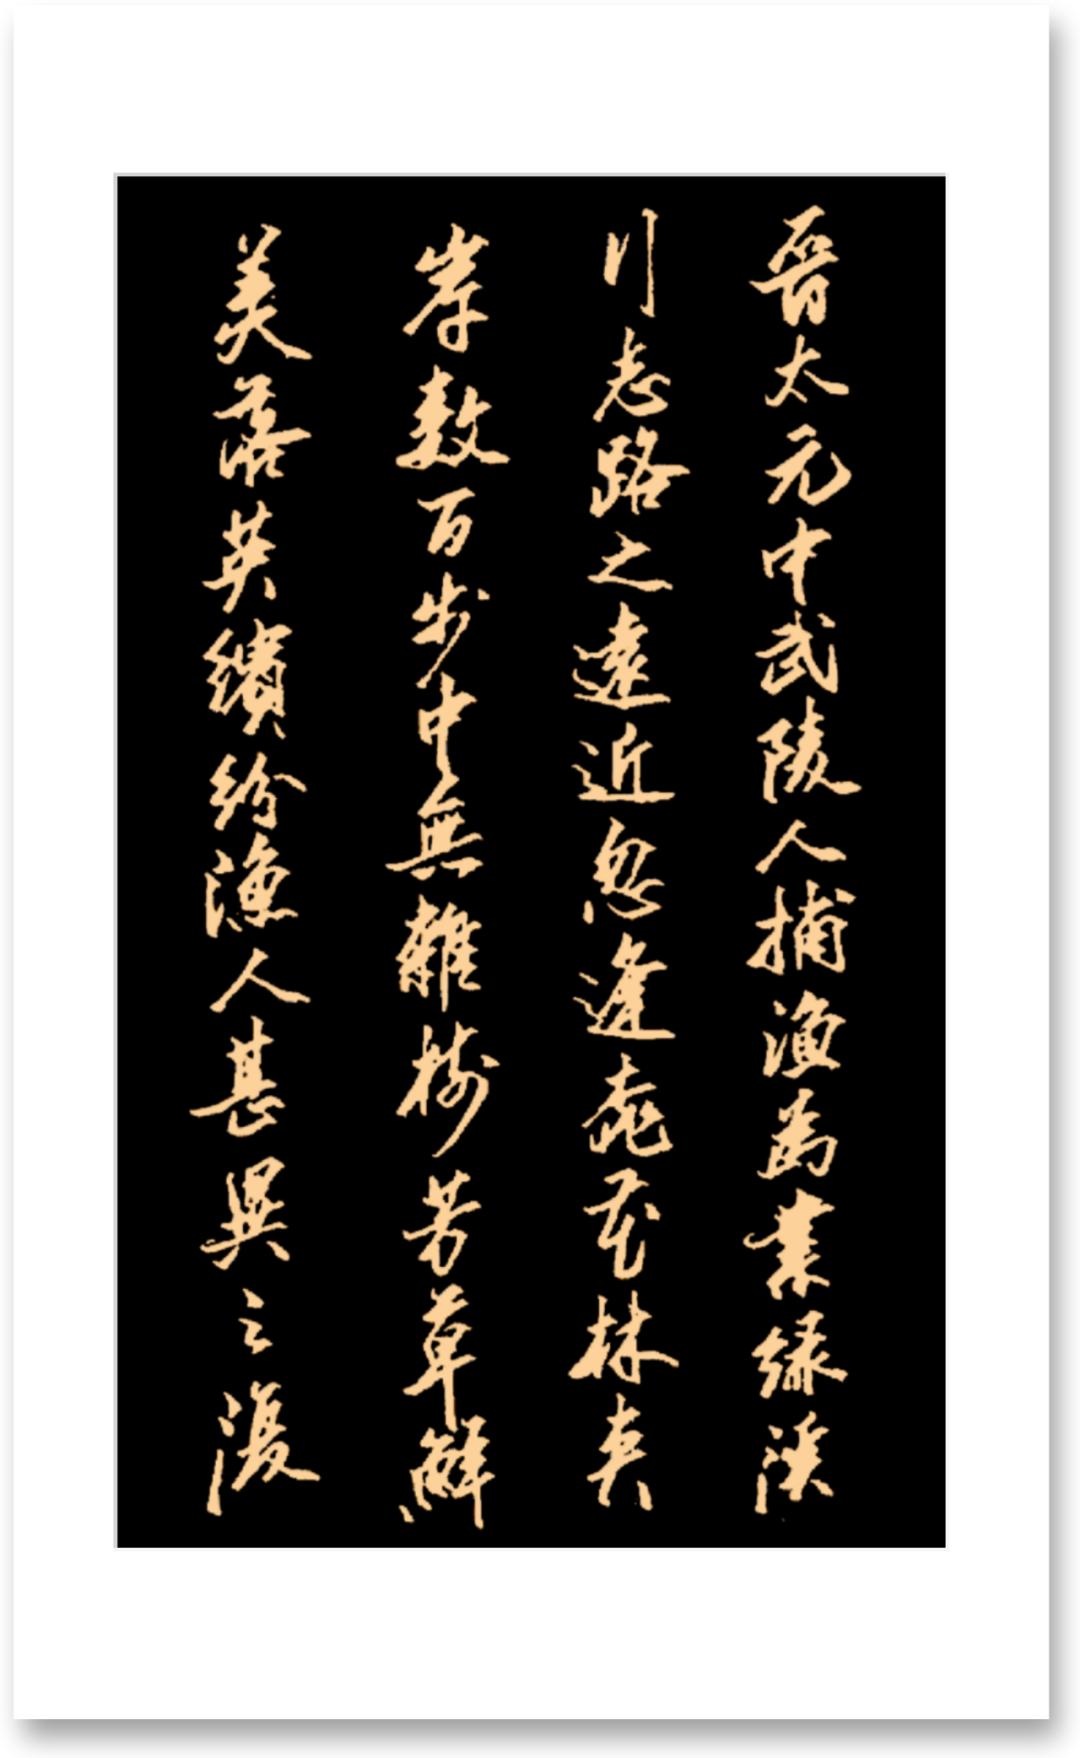 晉太元中武陵人捕漁為業緣溪
行忘路之遠近忽逢桃花林夾
岸數百步中無雜樹芳草鮮
美落英繽紛漁人甚異之復